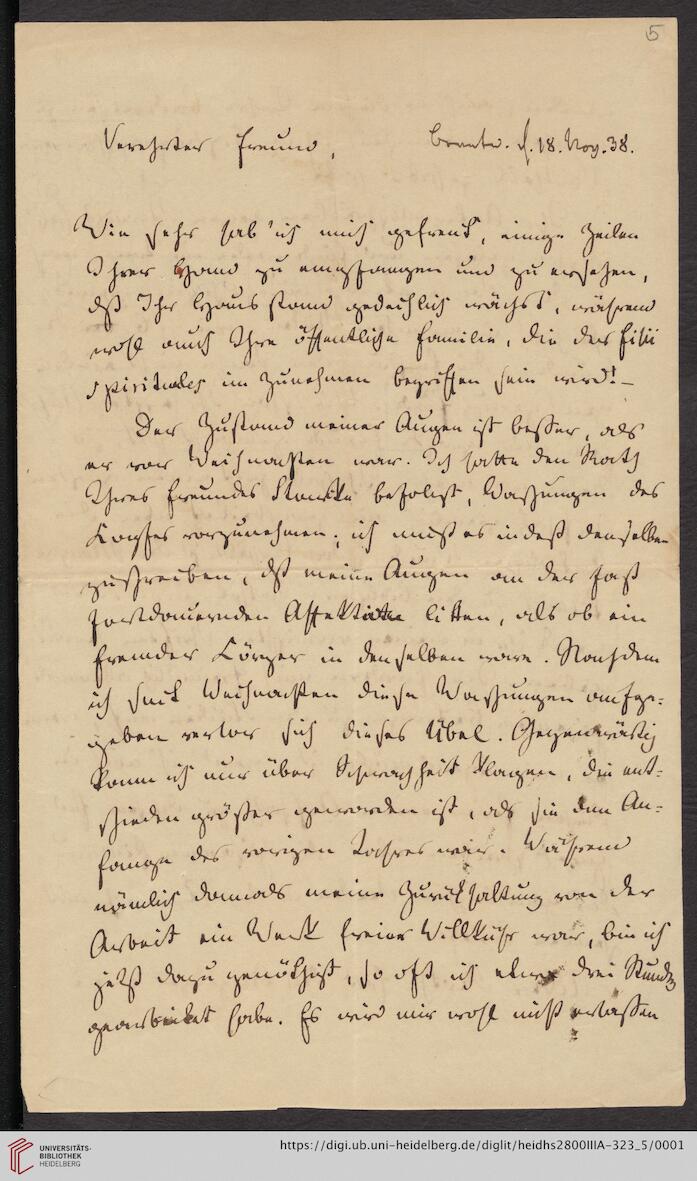 5
Verehrter Freund,
d. 18. Nov. 38.
Wie sehr hab' ich mich gefreut, einige Zeilen
Ihrer Hand zu empfangen und zu ersehen,
dß Ihr Hausstand gedeihlich wächst, während
wohl auch Ihre öffentliche Familie, die der filii
spirituales im Zunehmen begriffen sein wird! –
Der Zustand meiner Augen ist besser, als
er vor Weihnachten war. Ich hatte den Rath
Ihres Freundes befolgt, Waschungen des
Kopfes vorzunehmen; ich muß es indeß denselben
zuschreiben, dß meine Augen an der fast
fortdauernden Affektion litten, als ob ein
fremder Körper in denselben wäre. Nachdem
ich seit Weihnachten diese Waschungen aufge-
geben verlor sich dieses Übel. Gegenwärtig
kann ich nur über Schwachheit klagen, die ent-
schieden größer geworden ist, als sie dem An-
fange des vorigen Jahres war. Während
nämlich damals meine Zurückhaltung von der
Arbeit ein Werk freier Willkühr war, bin ich
jetzt dazu genöthigt, so oft ich etwa drei Stunden
gearbeitet habe. Es wird mir wohl nicht erlassen
UNIVERSITÄTS-
BIBLIOTHEK
HEIDELBERG
https://digi.ub.uni-heidelberg.de/diglit/heidhs2800IIIA-323_5/0001